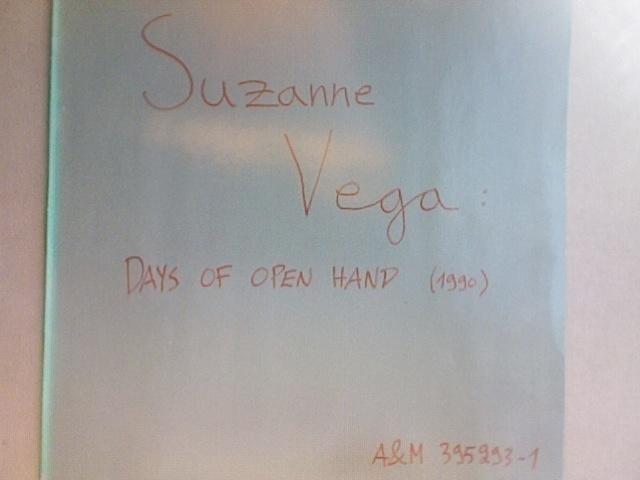 Suzanne
Vega:
DAYS OF OPEN HAND (1990)
A&M 395293-1